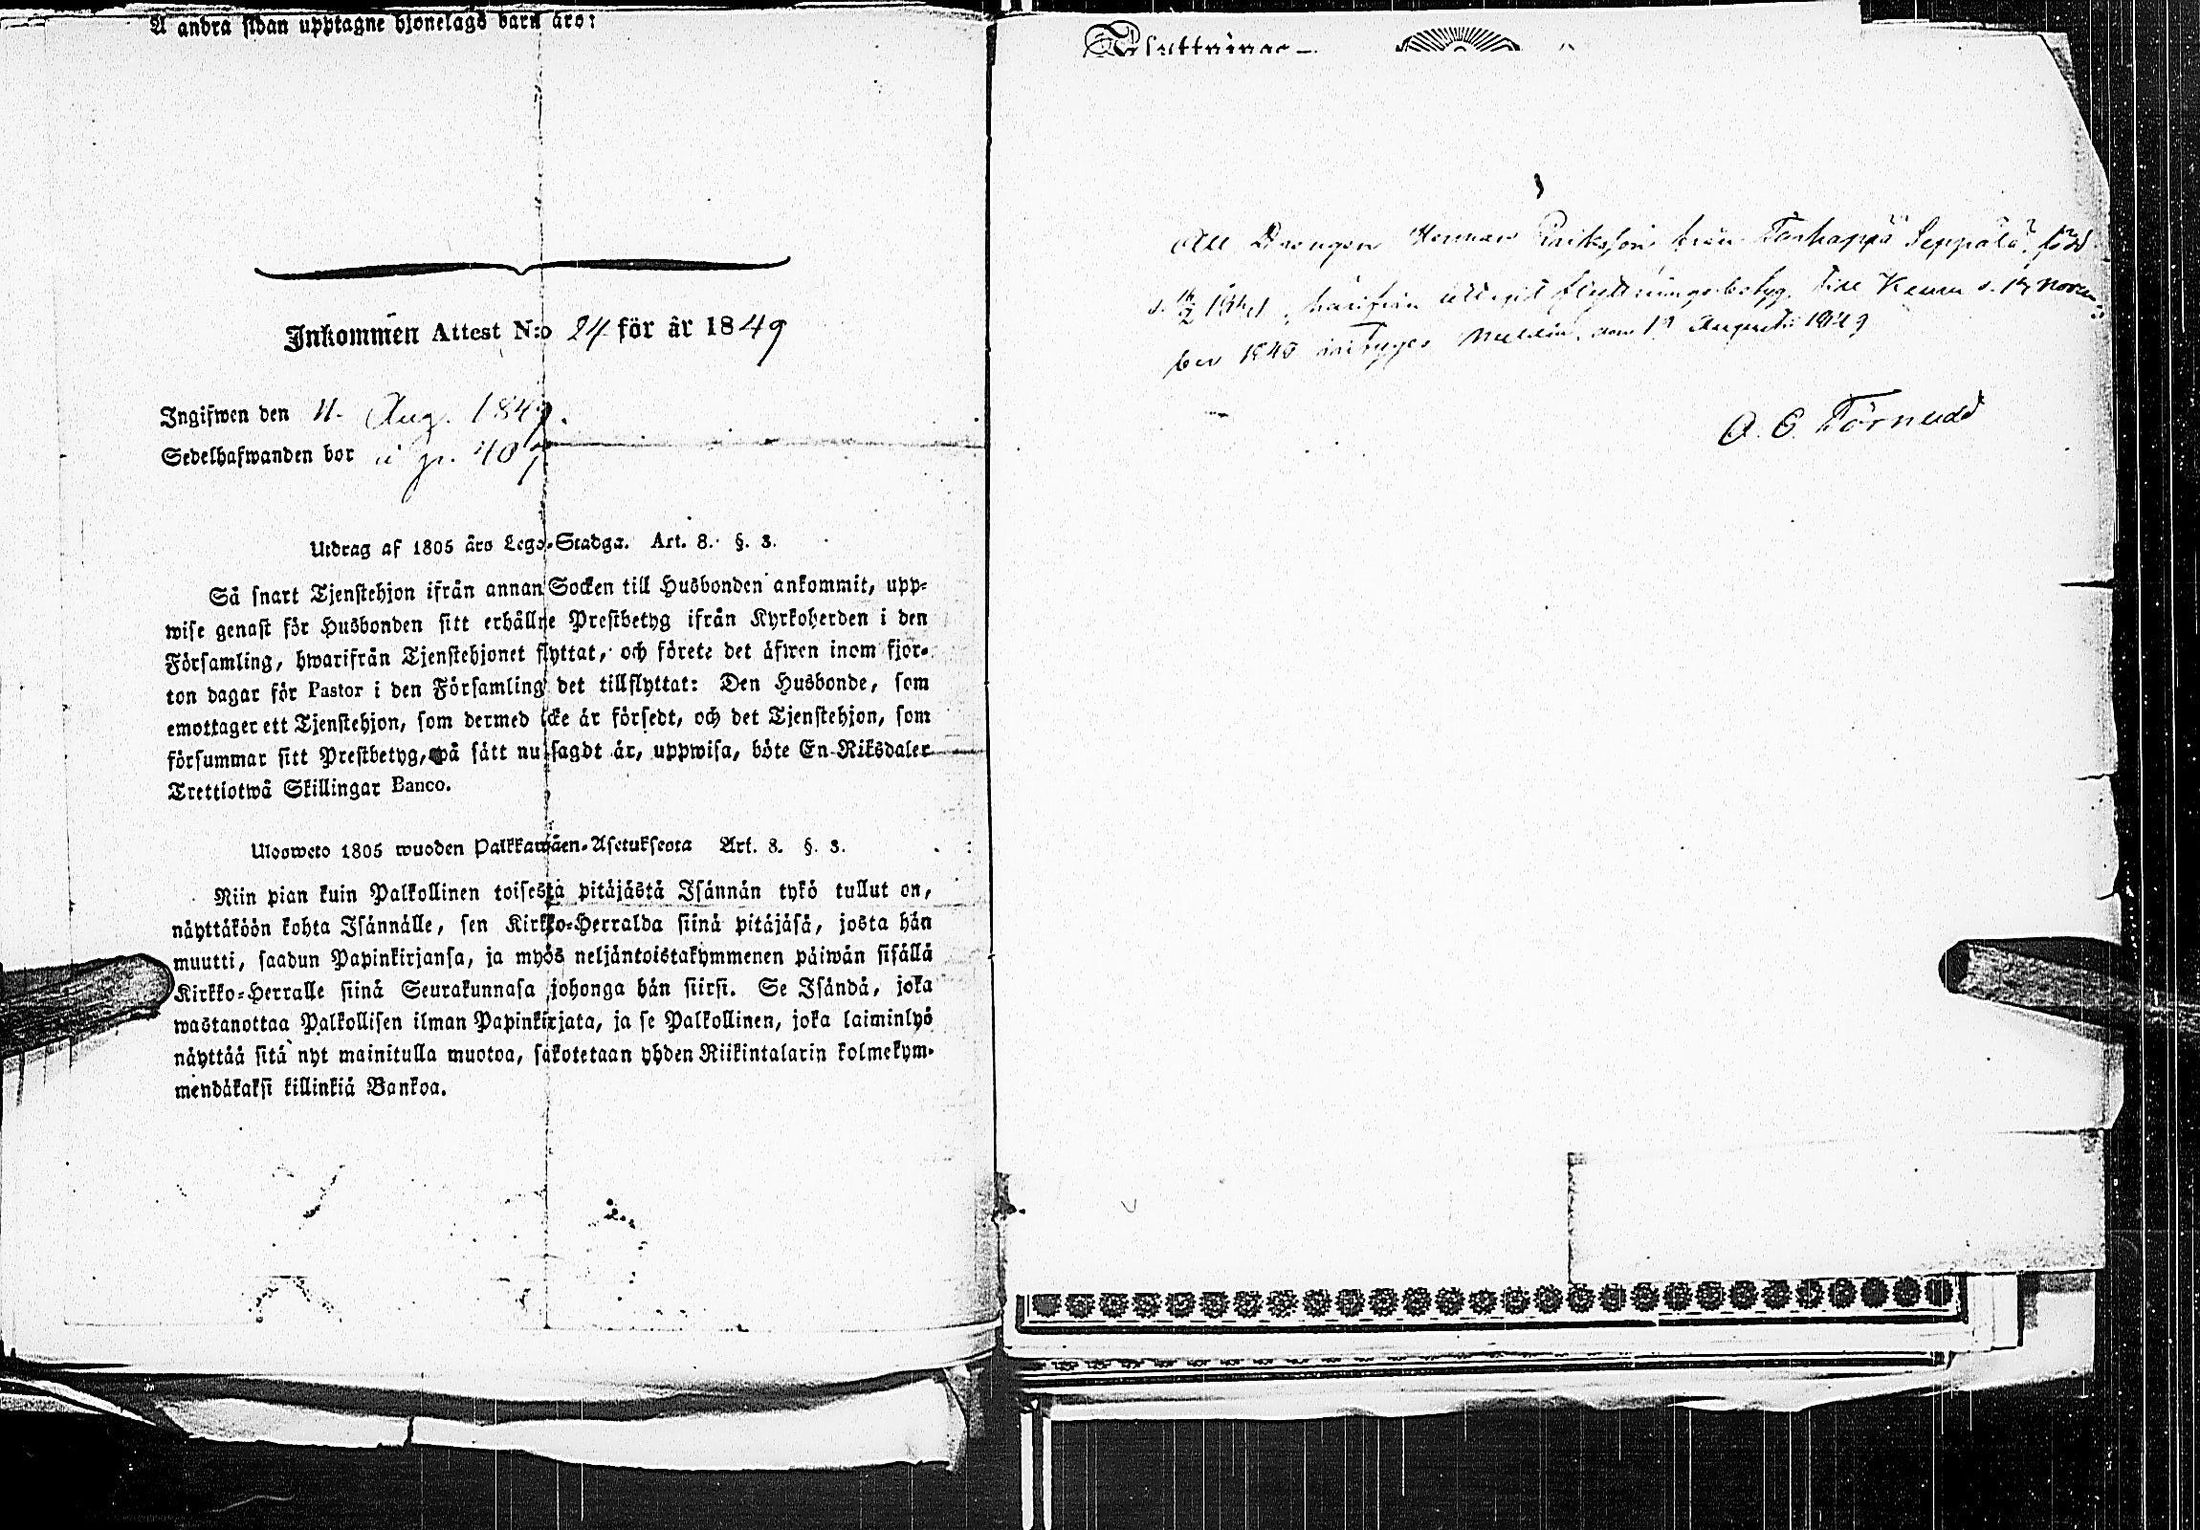 Å andra sidan upptagne hjonelags barn äro:
Inkommen Attest N:o 24 för år 1849
Ingifwen den 11. Aug. 1849.
Sedelhafwanden bor i
Utdrag af 1805 års Lego-Stadga. Art. 8. §. 3.
Så snart Tjenstehjon ifrån annan Socken till Husbonden ankommit, upp-
wise genast för Husbonden sitt erhållne Prestbetyg ifrån Kyrkoherden i den
Församling, hwarifrån Tjenstehjonet flyttat, och förete det äfwen inom fjor-
ton dagar för Pastor i den Församling det tillflyttat: Den Husbonde, som
emottager ett Tjenstehjon, som dermed icke är försedt, och det Tjenstehjon, som
försummar sitt Prestbetyg, på sätt nu sagdt är, uppwisa, böte En Riksdaler
Trettiotwå Skillingar Banco.
Ulosweto 1805 wuoden Palkkawäen-Asetuksesta Art. 8. §. 3.
Niin pian kuin Palkollinen toisesta pitäjästä Isännän tykö tullut on,
näyttäköön kohta Isännälle, sen Kirkko-Herralda siinä pitäjäsä, josta hän
muutti, saadun Papinkirjansa, ja myös neljäntoistakymmenen päiwän sisällä
Kirkko-Herralle siinä Seurakunnasa johonga hän siirsi. Se Isändä, joka
wastanottaa Palkollisen ilman Papinkirjata, ja se Palkollinen, joka laiminlyö
näyttää sitä nyt mainitulla muotoa, sakotetaan yhden Riikintalarin kolmekym-
mendäkaksi killinkiä Bankoa.
Att Drängen Herman Eriksson från Seppälä, född
härifrån uttagit flyttningsbetyg till d. 14 Novem-
ber betygas den Augusti 1849
A. E. Törnudd